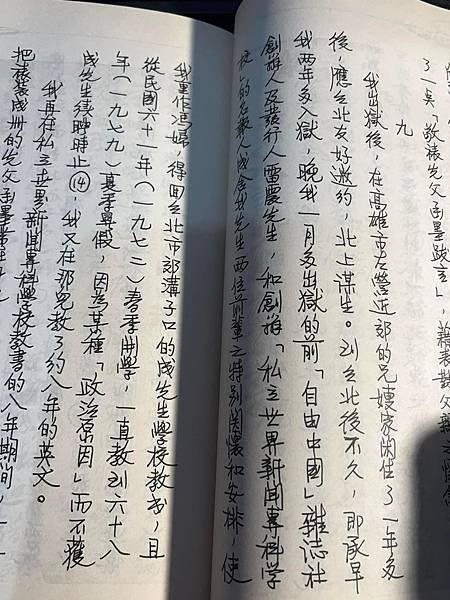 了一吳「敬裱先父函墨跋言」，
九
我出獄後，在高雄市左營近郊的兄嫂家閑住了一年多
後，應台北友好邀約，北上謀生。到台北後不久，即承早
我兩年多入獄，晚我一月多出獄的前「自由中國」雜誌社
創辦人及發行人雷震先生，和創辦「私立世界新聞專科學
校」的名報人成舍我先生兩位前輩之特別關懷和安排，使
我重作馮婦，得回台北市郊溝子口的成先生學校教書，且
從民國六十一年（一九七二）春季開學，一直教到六十八
年（一九七九）夏季畢假，因為某種「政治原因」而不獲
成先生續聘時止⑭，我又在那兒教了約八年的英文。
我再在私立世界新聞專科學校教書的八年期間，
把裱裝成冊的先父函墨